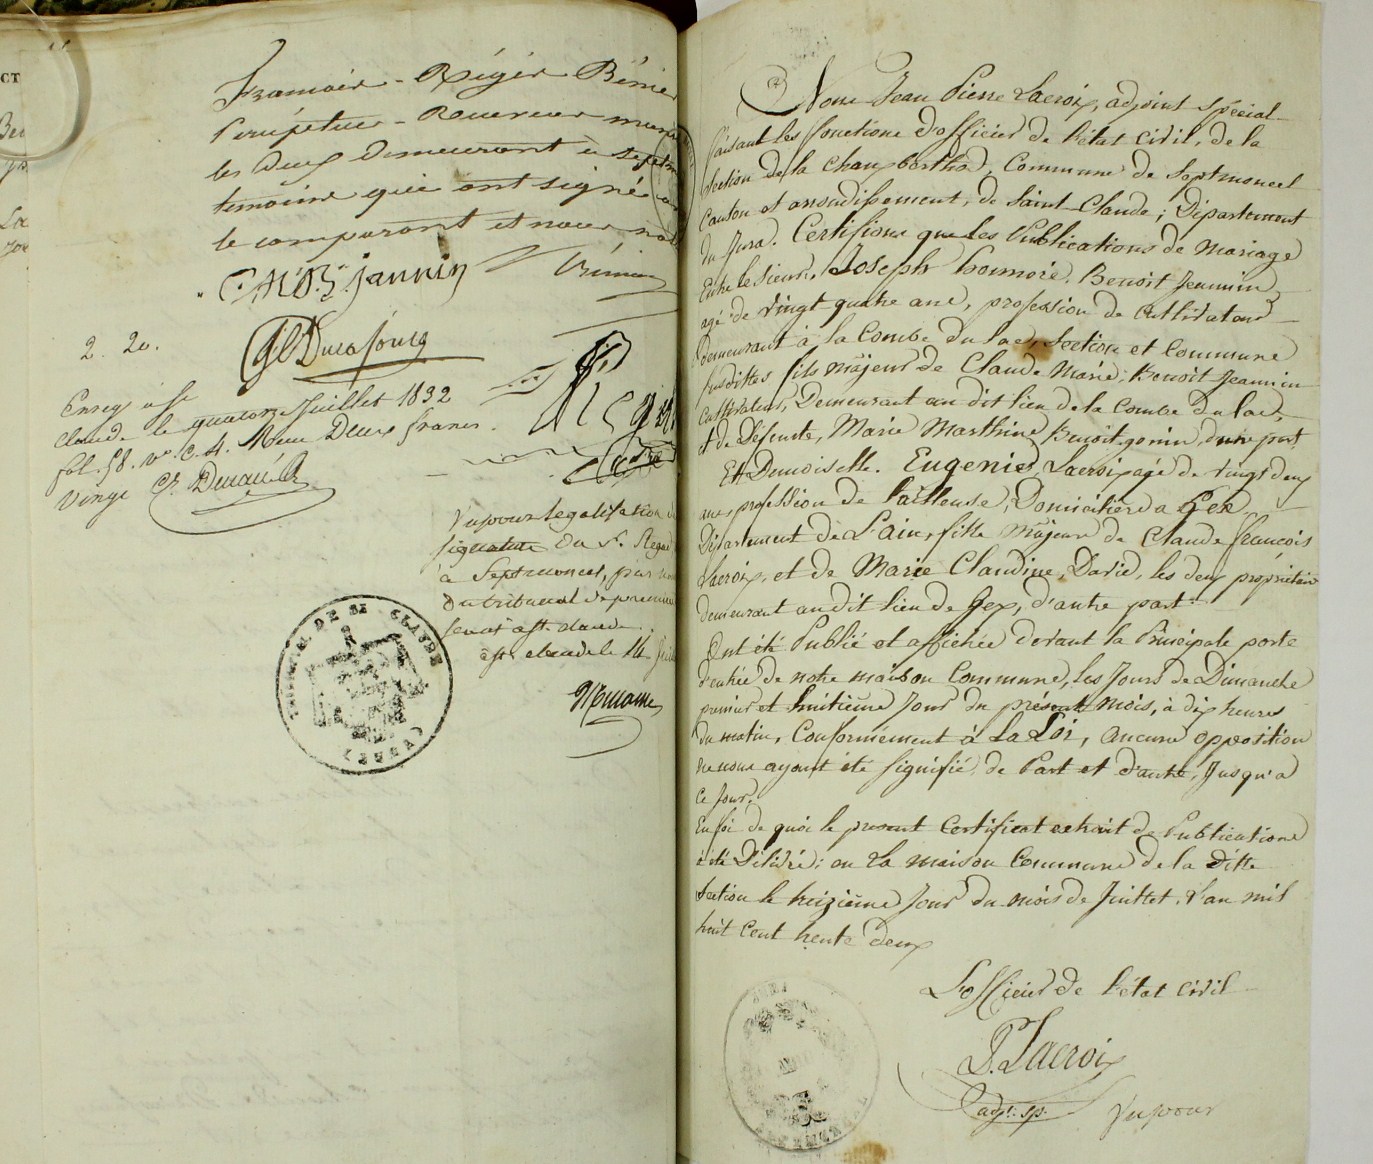 CT
François-Régis Bénier
Perépetuer - Receveur muni
les deux Demeurant à Septm
temoins qui ont signé
le comparant et nous
C. M. B.t jannin
Bénier
GC Durafourg
2. 20.
Enreg. à St
Claude le quatorze Juillet 1832
fol. 58. v.o C. 4. Reçu Deux francs
vingt
Regad
Vu pour legalisation de
signature du Sr. Regad
à Septmoncel, par nous
du tribunal de premiere
seant à St. Claude.
à St. Claude le 14 Juill
TRIBUNAL DE ST CLAUDE
(JURA)
Nous Jean Pierre Lacroix, adjoint Special
faisant les fonctions d'officier de l'état Civil, de la
Section de la Chaux berthod, Commune de Septmoncel
Canton et arrondissement, de Saint-Claude; Département
du Jura. Certifions que les Publications de Mariage
Entre le sieur, Joseph honnoré, Benoit Jeannin
agé de vingt quatre ans, profession de Cultivateur
demeurant à la Combe du lac, Section et Commune
susdittes fils majeur de Claude Marie, Benoit Jeannin
Cultivateur, Demeurant au dit lieu de la Combe du lac,
et de Défunte, Marie Marthine Benoit-gonin, d'une part
Et Demoiselle. Eugenie, Lacroix agé de vingt deux
ans, profession de Tailleuse, Domiciliée à Gex,
Département de L'ain, fille Majeur de Claude françois
Lacroix, et de Marie Claudine, David, les deux propriétaire
demeurant au dit lieu de Gex, d'autre part.
Ont été Publié et affichée devant la Principale porte
d'entrée de notre maison Commune, les Jours de Dimanche
premier et huitième Jour du présent mois, à dix heures
du matin, Conformement à La Loi, aucune opposition
ne nous ayant été signifié, de Part et d'autre, Jusqu'a
ce Jour.
En foi de quoi le présent Certificat extrait de Publications
à été Délivré; en La maison Commune de la ditte
Section le huizième Jour du mois de Juillet, l'an mil
huit Cent trente deux
L'officier de l'état civil
P. Lacroix
adjt. sp.
Vu pour